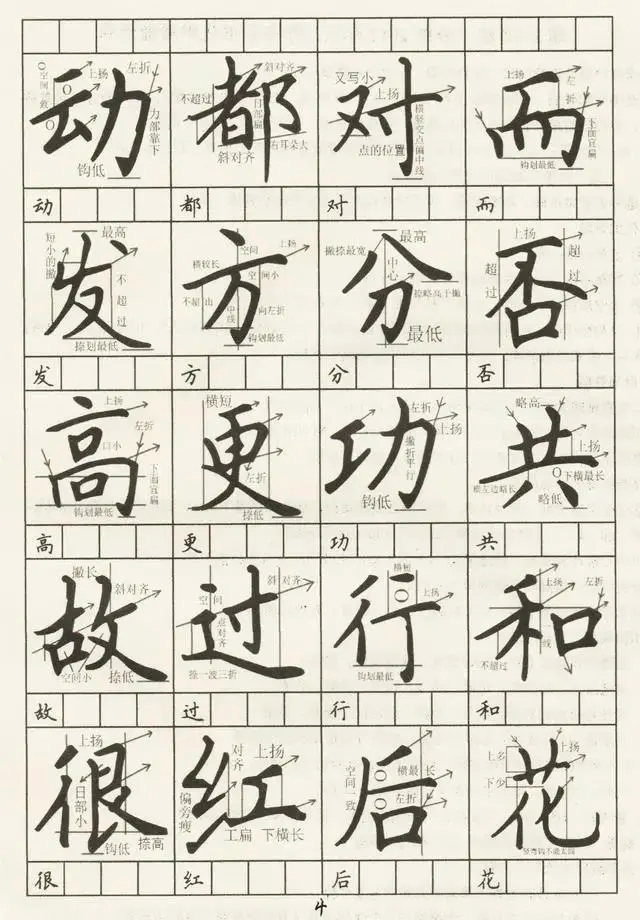 动 都 对 而
空间一致 上扬 左折 力部靠下 钩低
不超过 斜对齐 日部扁 斜对齐 右耳朵大
又写小 上扬 点的位置 横竖交点偏中线
上扬 左折 下面宜扁 钩划最低
动 都 对 而
发 方 分 否
短小的撇 最高 不超过 捺划最低
横较长 空间 上扬 空间小 不超出 中线 向左折 钩划最低
撇捺最宽 最高 中心 捺略高于撇 最低
上扬 超过 超过
发 方 分 否
高 更 功 共
上扬 左折 口小 下面宜扁 钩划最低
横短 左折 捺低
左折 上扬 撇折平行 钩低
略高 上扬 下横最长 横左边略长 略低
高 更 功 共
故 过 行 和
撇长 斜对齐 空间小 捺低
空间 斜对齐 点对齐 捺一波三折
横短 上扬 钩划最低
上扬 左折 不超过 线
故 过 行 和
很 红 后 花
上扬 日部小 钩低 捺高
对齐 上扬 偏旁瘦 工扁 下横长
空间一致 横最长 左折
上多 下少 上扬 竖弯钩不能太圆
很 红 后 花
4